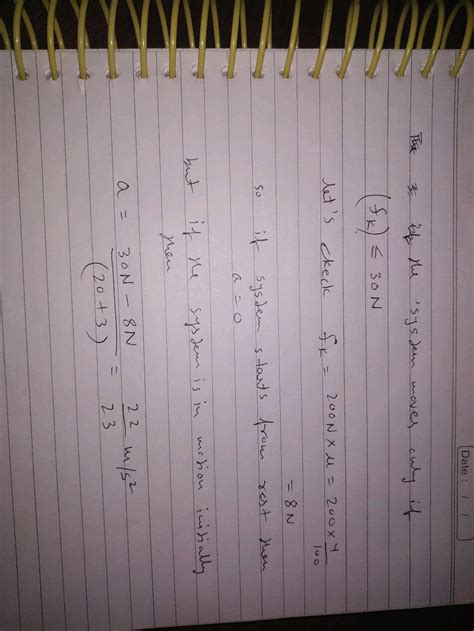 Date : / /
the system moves only if
(fk) ≤ 30N
let's check fk = 200N x μ = 200 x 4/100
= 8N
so if system starts from rest then
a = 0
but if the system is in motion initially
then
a = 30N - 8N / (20+3) = 22/23 m/s²